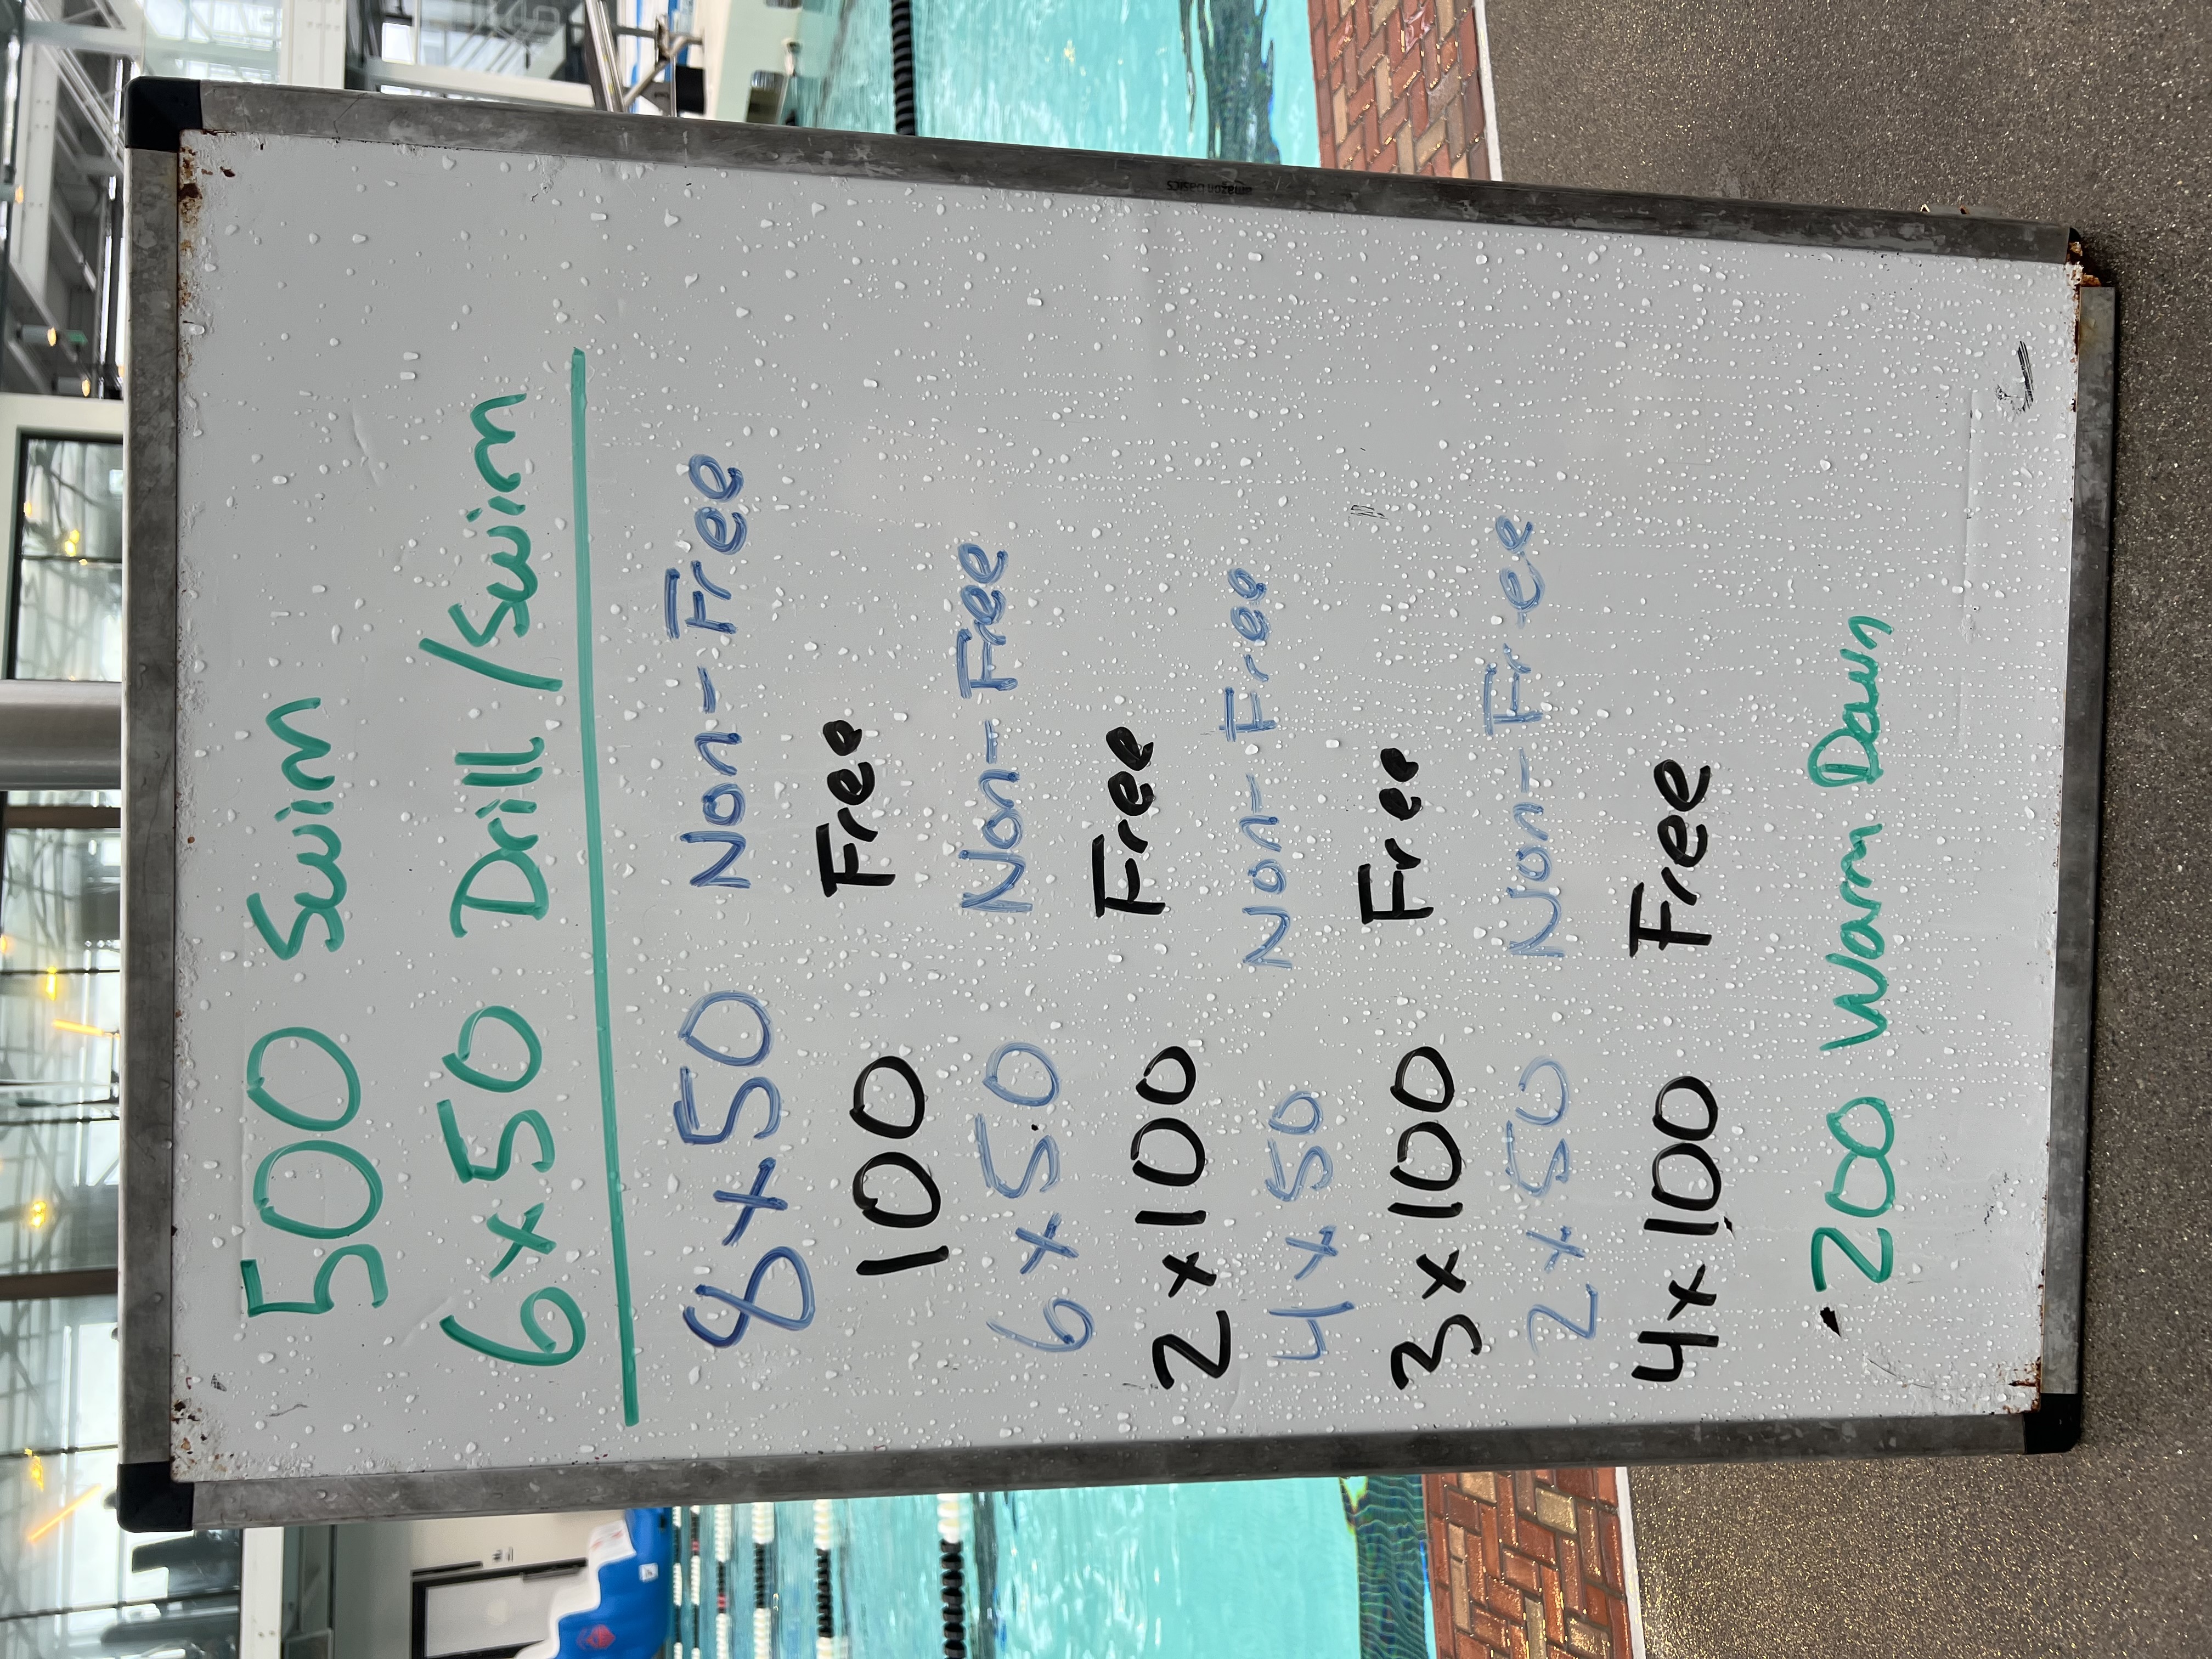 500 Swim
6x50 Drill/Swim
8x50 Non-Free
100 Free
6x50 Non-Free
2x100 Free
4x50 Non-Free
3x100 Free
2x50 Non-Free
4x100 Free
200 Warm Down
amazon basics